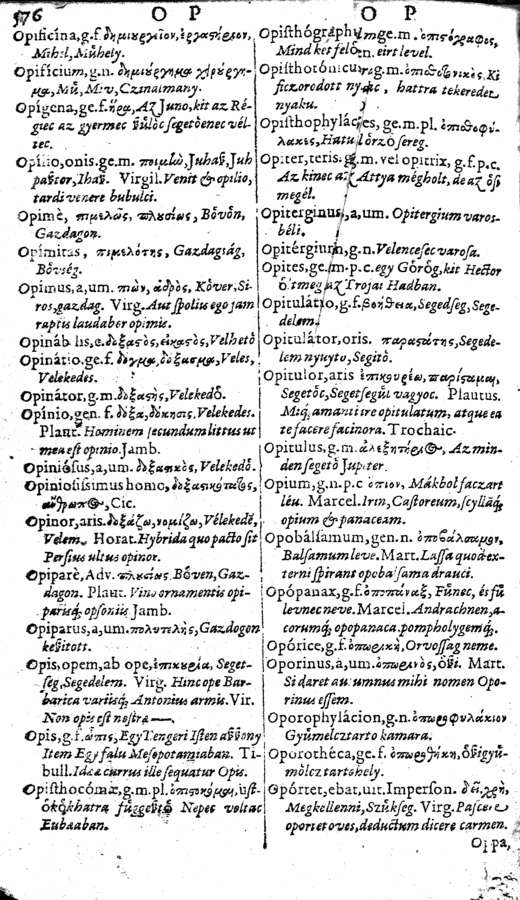 576 O P O P
Opificina, g.f. δημιουργεῖον, ἐργαςήριον,
Mihel, Műhely.
Opificium, g.n. δημιούργημα
Mű, Miv, Czinalmany.
Opígena, ge.f. ἥρα, Az Juno, kit az Ré-
giec az gyermec ſegetőenec vél-
tec.
Opílio, onis. ge.m. ποιμὼ, Juhaſ, Juh
paſtor, Ihaſ. Virgil. Venit & opilio,
tardi venere bubulci.
Opimè, πιμελῶς, πλυσίως, Bőuőn,
Gazdagon.
Opimitas, πιμελότης, Gazdagság,
Bővség.
Opimus, a, um. πίων, ἁδρὸς, Kőver, Si-
ros, gazdag. Virg. Aut ſpolijs ego jam
raptis laudaber opimis.
Opináb lis, e. δοξαςὸς, εἰκαςὸς, Velhető
Opinátio. ge.f. δόγμα, δόξασμα, Veles,
Velekedes.
Opinátor, g.m. δοξαςὴς, Velekedő.
Opínio, gen. f. δόξα, δόκησις, Velekedes.
Plaut. Hominem ſecundum littus ut
mea eſt opinio. Jamb.
Opinióſus, a, um. δοξαςικὸς, Velekedő.
Opinioſiſſimus homo, δοξαςικώταζος,
ἄνθρωπος, Cic.
Opinor, aris. δοξάζω, νομίζω, Vélekedë,
Velem. Horat. Hybrida quo pacto ſit
Perſius ultus opinor.
Opiparè, Adv. πλυσίως Bőven, Gaz-
dagon. Plaut. Vino ornamentis opi-
pariſq; opſoniis Jamb.
Opiparus, a, um. πολυτελὴς, Gazdogon
keſitott.
Opis, opem, ab ope, ἐπικυρία, Seget-
ſeg, Segedelem. Virg. Hinc ope Bar-
barica variiſq; Antonius armis. Vir.
Non opis eſt noſtræ —.
Opis, g.f. ὦπις, Egy Tengeri Iſten aſſony
Item Egy falu Meſopotamiaban. Ti-
bull. Idææ currus ille ſequatur Opis.
Opiſthocómæ, g.m.pl. ὀπισθοκόμαι, uſt-
őkőkhatra fűggeſtő Nepec voltac
Eubæaban.
Opiſthógraphum ge.m. ὀπιςόγραφος,
Mind ket felőln. eirt level.
Opiſthotónicus, g.m. ὀπισθοτονικὸς, Ki
ficzorodott nyac, hattra tekeredet
nyaku.
Opiſthophyláces, ge.m.pl. ὀπισθοφύ-
λακες, Hatul őrző ſereg.
Opíter, teris. g. m. vel opitrix, g.f.p.c.
Az kinec az Attya mégholt, de az őſi
megél.
Opiterginus, a, um. Opitergium varos-
béli.
Opitérgium, g.n. Velenceſec varoſa.
Opites, ge.m.p.c. egy Gőrőg, kit Hector
őlt meg az Trojai Hadban.
Opitulátio, g.f. βοήθεια, Segedſeg, Sege-
delem.
Opitulátor, oris. παραςάτης, Segede-
lem nyuyto, Segitő.
Opitulor, aris ἐπικυρέω, παρίςαμαι,
Segetőc, Segetſegűl vagyoc. Plautus.
Miq; amanti ire opitulatum, atque ea
te facere facinora. Trochaic.
Opitulus, g.m. ἀλεξητήριος, Az min-
den ſegető Jupiter.
Opium, g.n.p.c ὄπιον, Mákbol faczart
léu. Marcel. Irin, Caſtoreum, ſcyllāq;
opium & panaceam.
Opobálſamum, gen.n. ὀποβάλσαμον,
Balſamum leve. Mart. Laſſa quod ex-
terni ſpirant opobalſama drauci.
Opópanax, g.f. ὀπόπαναξ, Fűnec, és fű
levnec neve. Marcel. Andrachnen, a-
corumq; opopanaca. pompholygemq;.
Opórice, g.f. ὀπωρικὴ, Orvoſſag neme.
Oporinus, a, um. ὀπωρινὸς, őſi. Mart.
Si daret autumnus mihi nomen Opo-
rinus eſſem.
Oporophylácion, g.n. ὀπωροφυλάκιον
Gyűmelcztarto kamara.
Oporothéca, ge. f. ὀπωροθήκη, őſi gyű-
mőlcz tartohely.
Opórtet, ebat, uit. Imperſon. δεῖ, χρὴ,
Megkellenni, Szűkſeg. Virg. Paſcere
oportet oves, deductum dicere carmen.